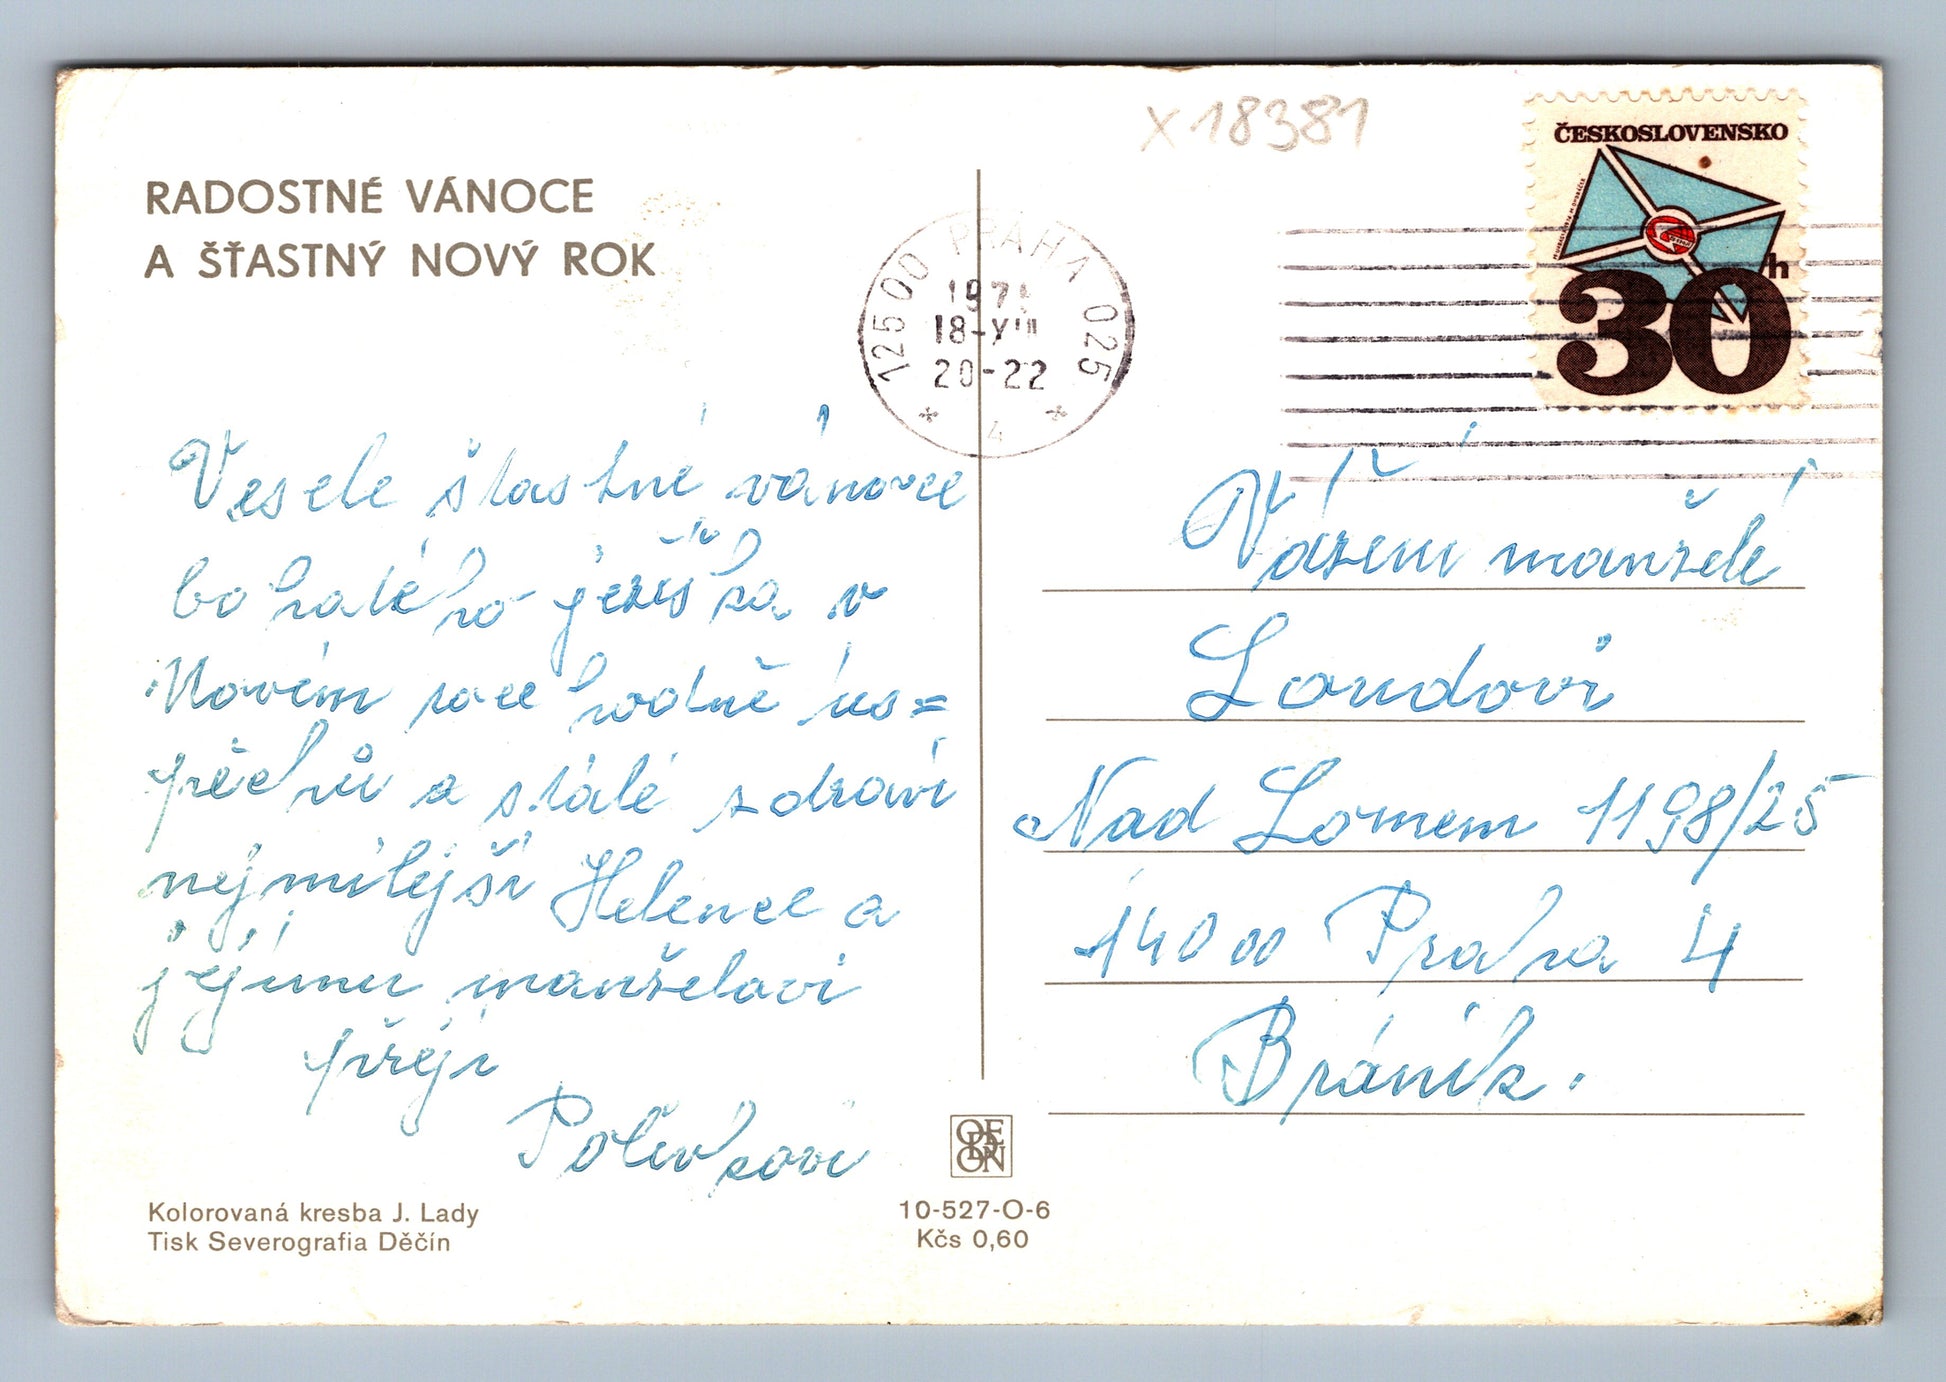 X 18381
ČESKOSLOVENSKO
30 h
RADOSTNÉ VÁNOCE
A ŠŤASTNÝ NOVÝ ROK
125 00 PRAHA 025
18-XII
20-22
4
Veselé šťastné vánovce
bohatého ježíška v
Novém roce hodně ús=
pěchů a stálé zdraví
nejmilejší Helence a
jejímu manželovi
přejí
Polívkovi
Vážení manželé
Loudovi
Nad Lomem 1198/25
140 00 Praha 4
Bráník.
ODEON
Kolorovaná kresba J. Lady
Tisk Severografia Děčín
10-527-O-6
Kčs 0,60